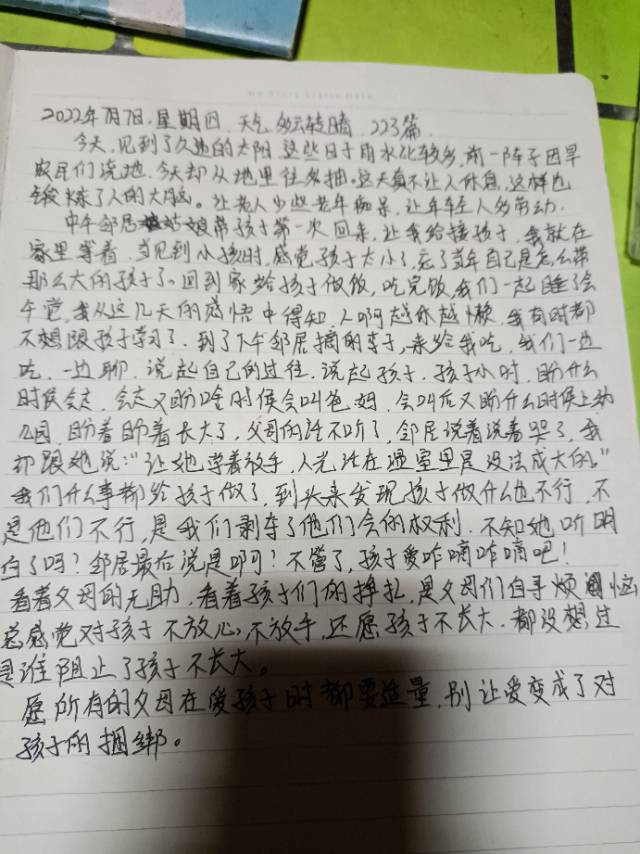 2022年7月7日.星期四.天气.多云转晴.223篇.
今天,见到了久违的太阳.这些日子雨水比较多,前一阵子因旱
农民们浇地.今天却从地里往外抽.这天真不让人休息,这样也
锻炼了人的大脑。让老人少些老年痴呆,让年轻人多劳动.
中午邻居姑娘带孩子第一次回来,让我给接孩子,我就在
家里等着.当见到小孩时,感觉孩子太小了,忘了当年自己是怎么带
那么大的孩子了。回到家给孩子做饭,吃完饭,我们一起睡了会
午觉,我从这几天的感悟中得知人啊越休越懒,我有时都
不想跟孩子学习了.到了下午邻居摘的李子,来给我吃,我们一边
吃.一边聊.说起自己的过往.说起孩子.孩子小时.盼什么
时候会走.会走又盼啥时候会叫爸妈.会叫后又盼什么时候上幼
儿园.盼着盼着长大了.父母的话不听了,邻居说着说着哭了,我
却跟她说:"让她学着放手,人光活在温室里是没法成大的。"
我们什么事都给孩子做了,到头来发现孩子做什么也不行,不
是他们不行,是我们剥夺了他们会的权利.不知她听明
白了吗?邻居最后说是啊?不管了,孩子爱咋嘀咋嘀吧!
看着父母的无助,看着孩子们的挣扎,是父母们自寻烦恼
总感觉对孩子不放心,不放手,还愿孩子不长大.都没想过
是谁阻止了孩子不长大。
愿所有的父母在爱孩子时都要适量,别让爱变成了对
孩子的捆绑。